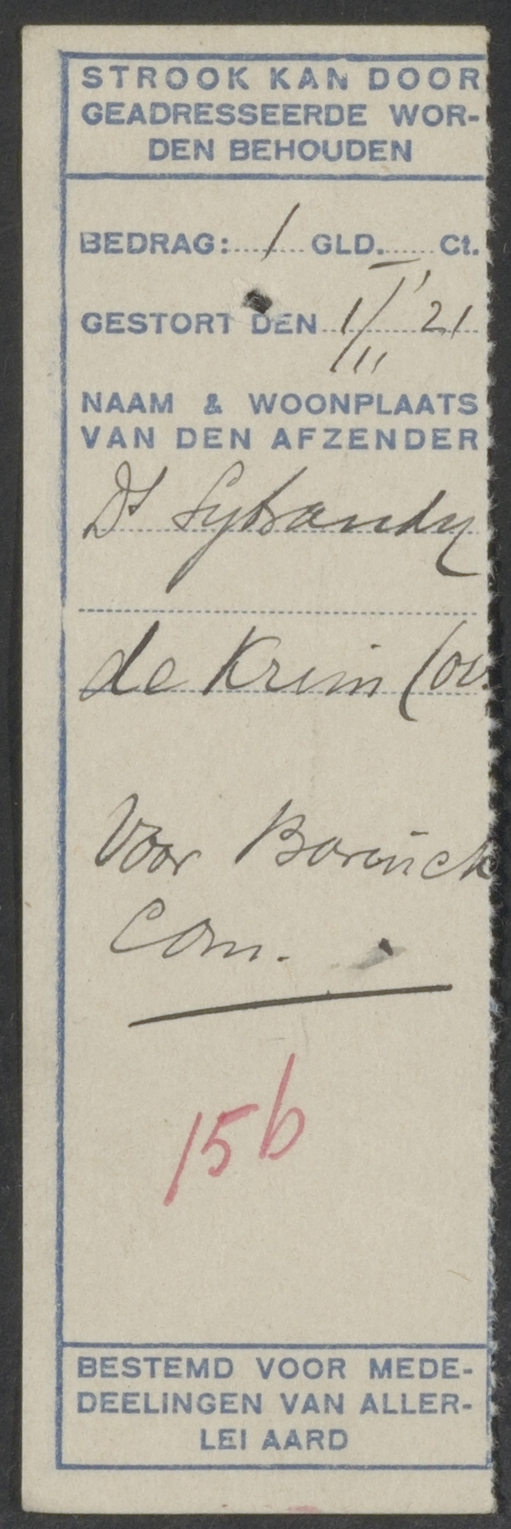 STROOK KAN DOOR
GEADRESSEERDE WOR-
DEN BEHOUDEN
BEDRAG: 1 GLD. Ct.
GESTORT DEN 1/III '21
NAAM & WOONPLAATS
VAN DEN AFZENDER
Ds Sybrandy
de Krim (ov.
Voor Borinck
Com.
156
BESTEMD VOOR MEDE-
DEELINGEN VAN ALLER-
LEI AARD